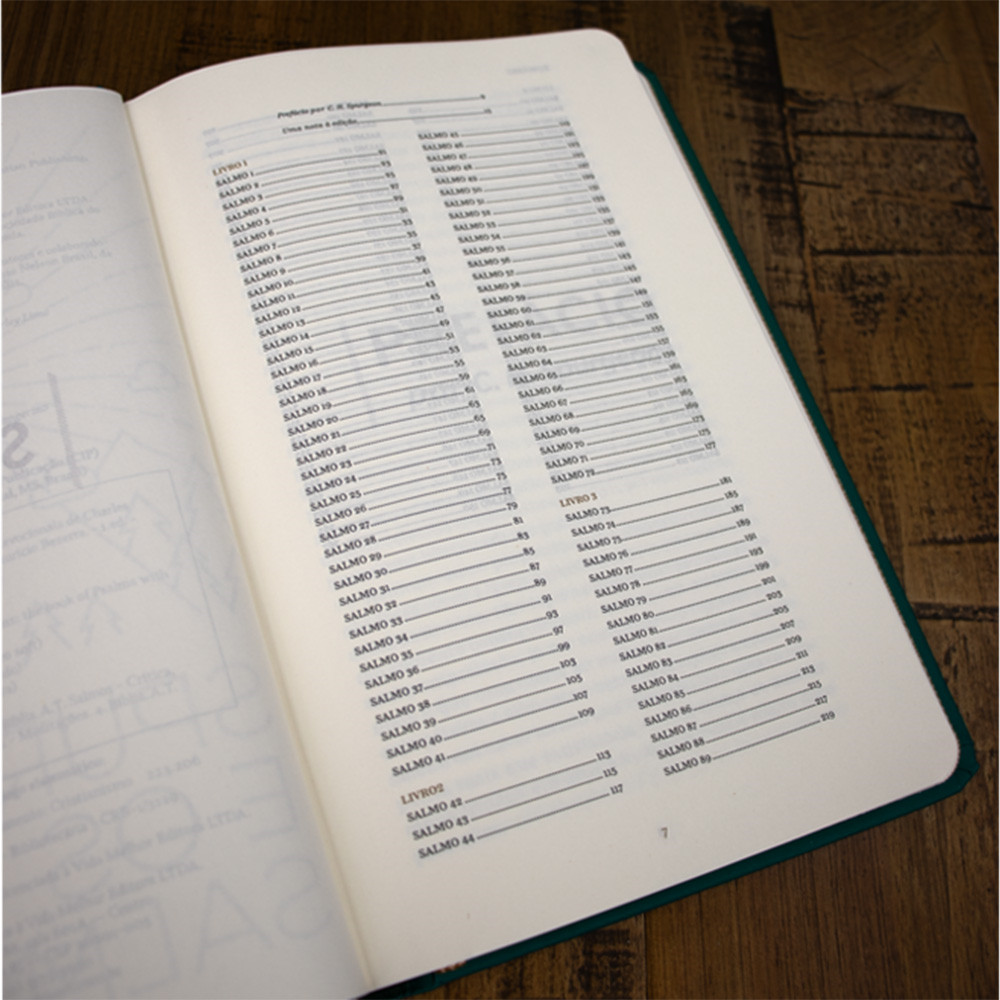 Prefácio por C. H. Spurgeon
Uma nota à edição
LIVRO 1
SALMO 1 21
SALMO 2 23
SALMO 3 25
SALMO 4 27
SALMO 5 29
SALMO 6 31
SALMO 7 33
SALMO 8 35
SALMO 9 37
SALMO 10 39
SALMO 11 41
SALMO 12 43
SALMO 13 45
SALMO 14 47
SALMO 15 49
SALMO 16 51
SALMO 17 53
SALMO 18 55
SALMO 19 59
SALMO 20 61
SALMO 21 63
SALMO 22 65
SALMO 23 69
SALMO 24 71
SALMO 25 73
SALMO 26 75
SALMO 27 77
SALMO 28 79
SALMO 29 81
SALMO 30 83
SALMO 31 85
SALMO 32 87
SALMO 33 89
SALMO 34 91
SALMO 35 93
SALMO 36 97
SALMO 37 99
SALMO 38 103
SALMO 39 105
SALMO 40 107
SALMO 41 109
LIVRO2
SALMO 42 113
SALMO 43 115
SALMO 44 117
SALMO 45 119
SALMO 46 121
SALMO 47 123
SALMO 48 125
SALMO 49 127
SALMO 50 129
SALMO 51 131
SALMO 52 133
SALMO 53 135
SALMO 54 137
SALMO 55 139
SALMO 56 141
SALMO 57 143
SALMO 58 145
SALMO 59 147
SALMO 60 149
SALMO 61 151
SALMO 62 153
SALMO 63 155
SALMO 64 157
SALMO 65 159
SALMO 66 161
SALMO 67 163
SALMO 68 165
SALMO 69 169
SALMO 70 173
SALMO 71 175
SALMO 72 177
LIVRO 3
SALMO 73 181
SALMO 74 185
SALMO 75 187
SALMO 76 189
SALMO 77 191
SALMO 78 193
SALMO 79 199
SALMO 80 201
SALMO 81 203
SALMO 82 205
SALMO 83 207
SALMO 84 209
SALMO 85 211
SALMO 86 213
SALMO 87 215
SALMO 88 217
SALMO 89 219
7